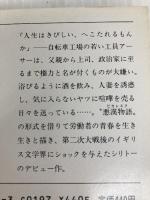 『人生はきびしい、へこたれるもん
か』――自転車工場の若い工員アー
サーは、父親から上司、政治家に至
るまで権力と名が付くものが大嫌い。
浴びるように酒を飲み、人妻を誘惑
し、気に入らないヤツに喧嘩を売る
日々を送っている……。“悪漢物語”
の形式を借りて労働者の青春を生き
生きと描き、第二次大戦後のイギリ
ス文学界にショックを与えたシリトー
のデビュー作。
定価440円